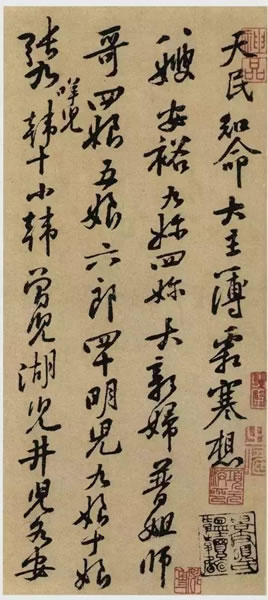 天民知命大主簿霜寒想
八嫂安裕九妳四妳大新婦普姐師
哥四娘五娘六郎四十明兒九娘十娘
張九咩兒韓十小韓曾兒湖兒井兒各安